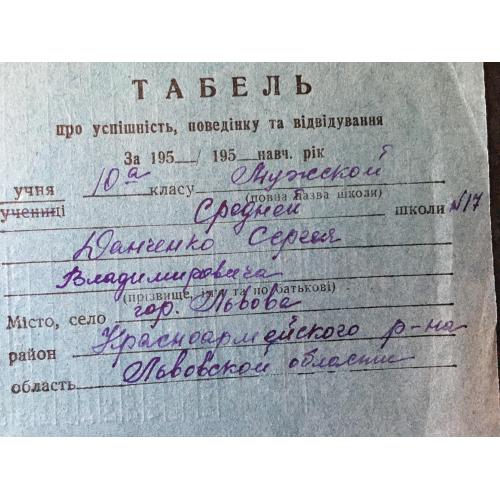 ТАБЕЛЬ
про успішність, поведінку та відвідування
За 195__/ 195__навч. рік
учня 10а класу Мужской
(повна назва школи)
учениці Средней школи №17
Данченко Сергея
Владимировича
(прізвище, ім'я та по батькові)
Місто, село гор. Львова
район Красноармейского р-на
область Львовской области